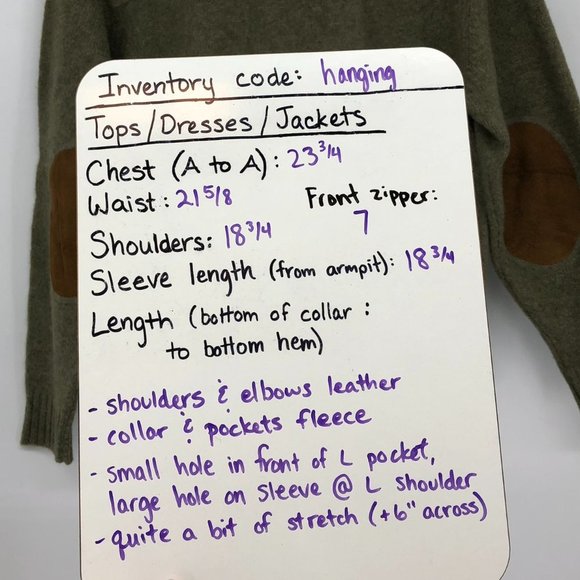 Inventory code: hanging
Tops/Dresses/Jackets
Chest (A to A): 23 3/4
Waist: 21 5/8
Front zipper:
7
Shoulders: 18 3/4
Sleeve length (from armpit): 18 3/4
Length (bottom of collar :
to bottom hem)
- shoulders & elbows leather
- collar & pockets fleece
- small hole in front of L pocket,
large hole on sleeve @ L shoulder
- quite a bit of stretch (+6" across)